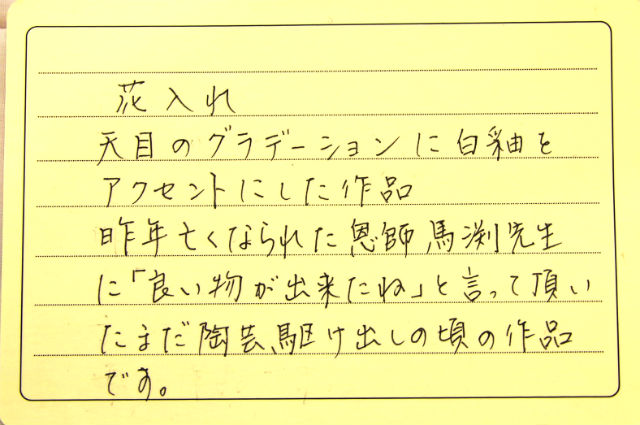 花入れ
天目のグラデーションに白釉を
アクセントにした作品
昨年亡くなられた恩師馬渕先生
に「良い物が出来たね」と言って頂い
たまだ陶芸駆け出しの頃の作品
です。